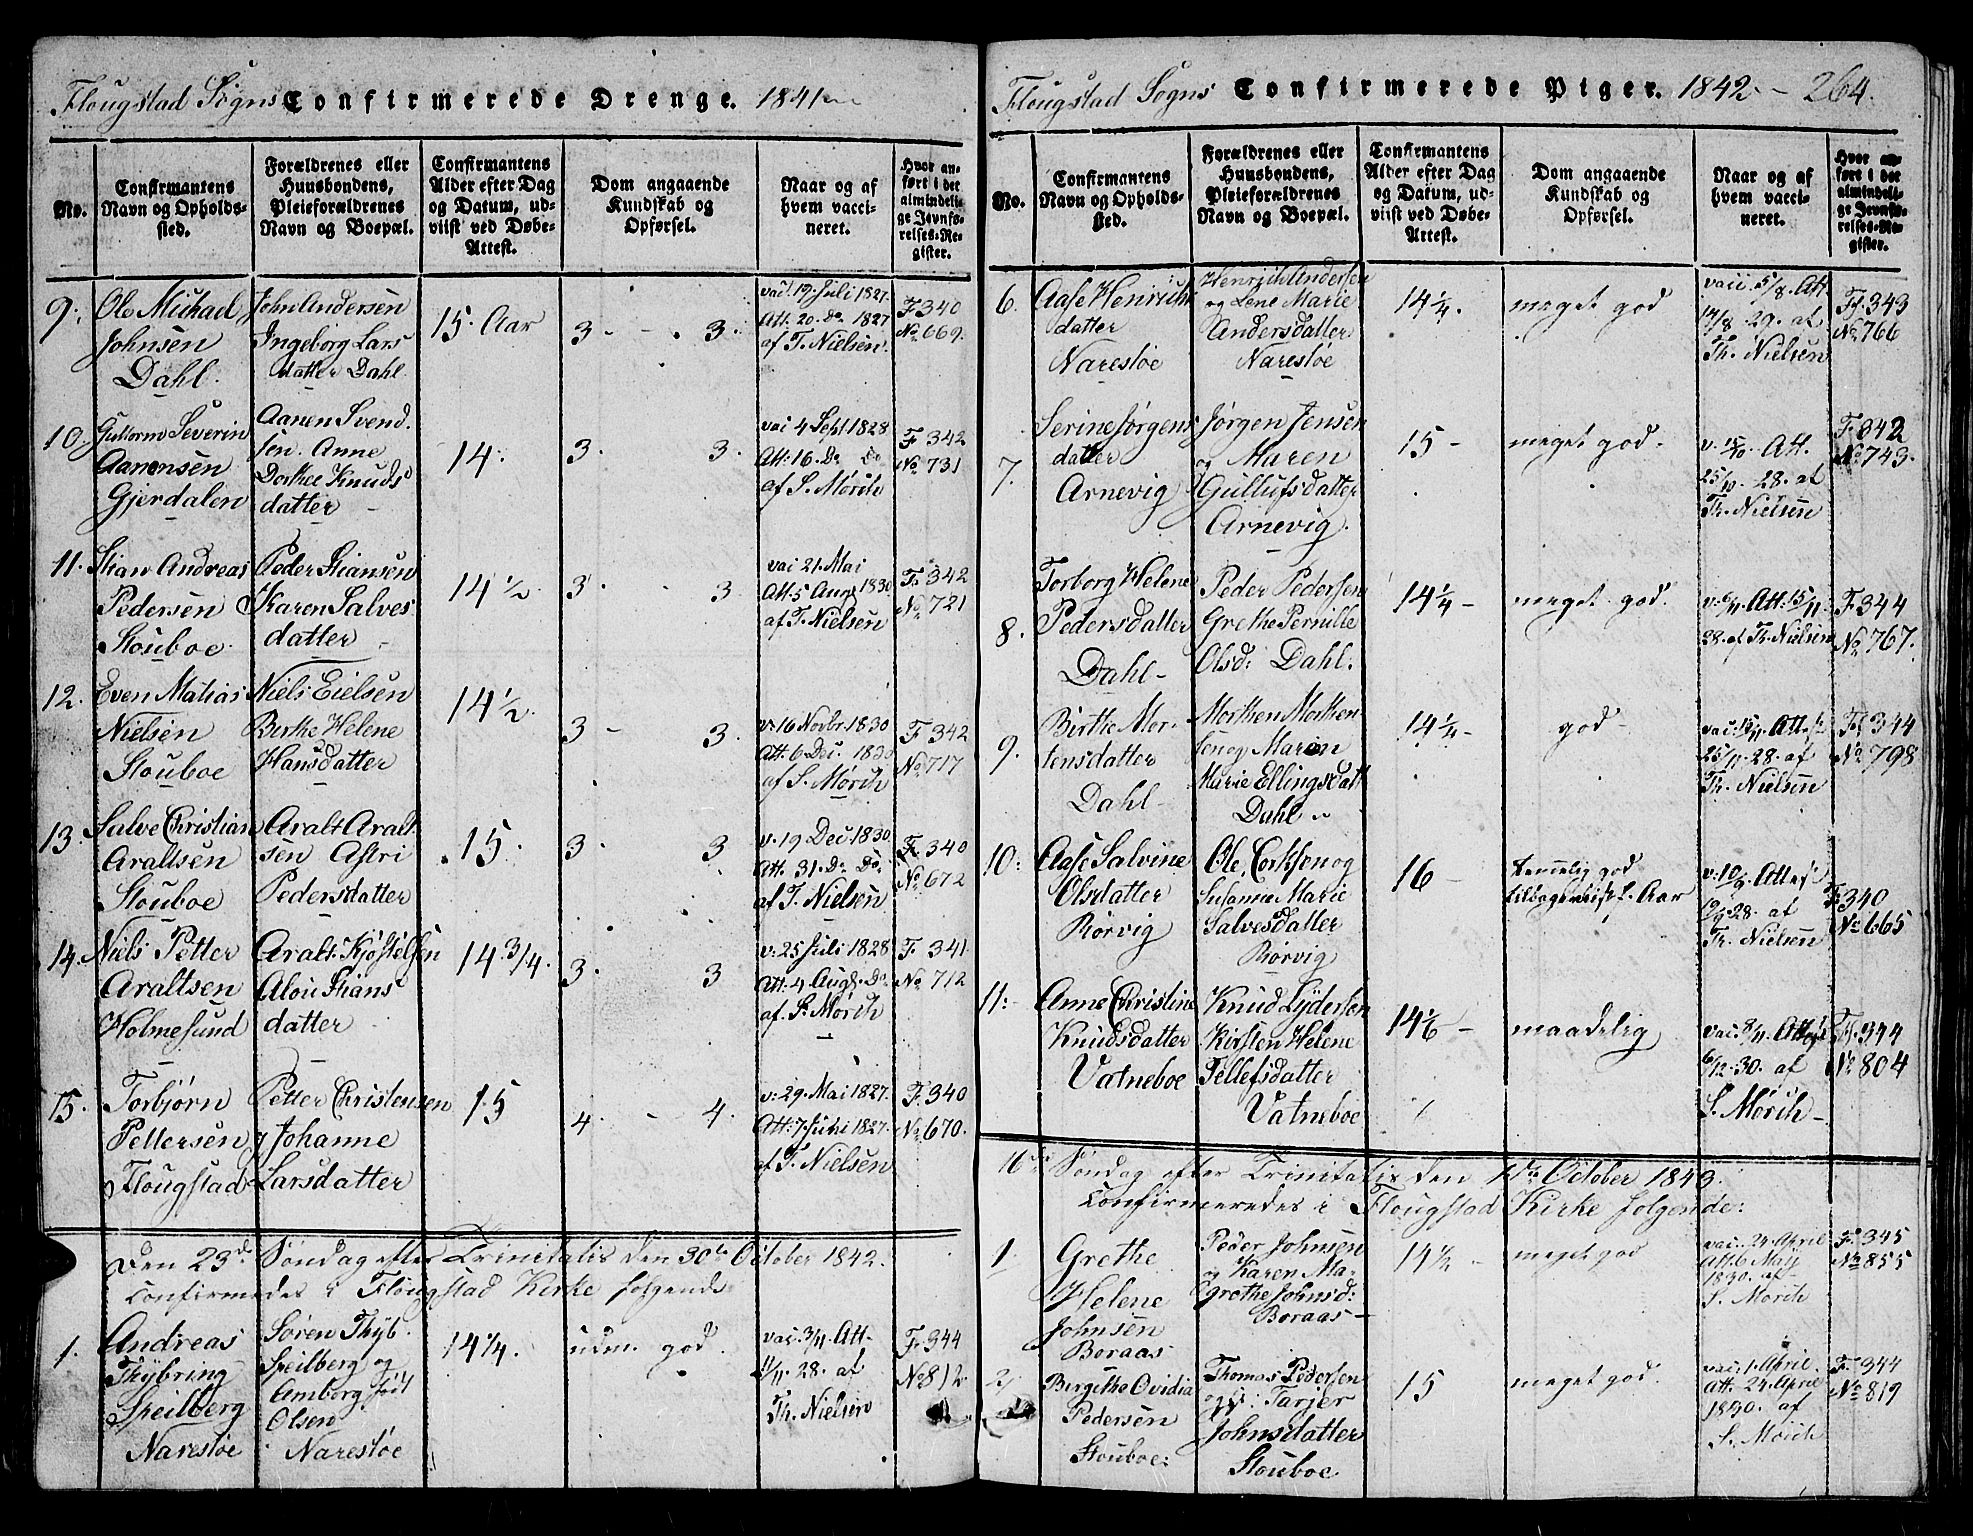 Flougstad Sogns Confirmerede Drenge. 1841
No.
Confirmantens Navn og Opholdssted.
Forældrenes eller Huusbondens, Pleieforældrenes Navn og Boepæl.
Confirmantens Alder efter Dag og Datum, udviist ved Døbe-Attest.
Dom angaaende Kundskab og Opførsel.
Naar og af hvem vaccineret.
Hvor anført i det almindelige Jevnførelses-Register.
9. Ole Michael John Andersen 15 Aar 3 - 3. vac. 19 Juli 1827 F 340
Johnsen Ingeborg Lars Att. 20. Do. 1827 No 669.
Dahl. datter Dahl af T. Nielsen.
10. Guttorm Severin Aanen Svend 14. 3. 3. vac 4 Sept 1828 F 342
Aanensen sen. Anne Att: 16. Do Do No 731
Gjerdalen Dorthee Knuds af S. Mørch
datter
11. Stian Andreas Peder Stiansen 14 1/2 3. 3 vac 21. Mai F. 342
Pedersen Karen Salves Att. 5 Aug 1830 No 721
Stouboe datter af T. Nielsen
12. Even Matias Niels Eielsen 14 1/2 3 - 3. v. 16 Novbr. 1830 F 342
Nielsen Birthe Helene Att. 6 Dec. 1830 No 717
Stouboe Hansdatter af S. Mørch
13. Salve Christian Aralt Aralt 15. 3. 3 v. 19 Dec 1830. F. 340
Araltsen sen Astri Att. 31. Do Do. No 672
Stouboe Pedersdatter af T. Nielsen
14. Niels Petter Aralt Kjøstelsen 14 3/4. 3. 3 v: 25 Juli 1828 F. 341.
Araltsen Stians Att: 4 Aug. Do No 712
Holmesund datter af S. Mørch
15. Torbjørn Petter Christensen 15 4. - 4. v: 29. Mai 1827. F. 340
Pettersen Johanne Att: 7 Juni 1827. No 670.
Flougstad Larsdatter af T. Nielsen
Den 23d Søndag efter Trinitatis den 30te October 1842.
Confirmedes i Flougstad Kirke følgende
1. Andreas Søren Thyb. 14 1/4. udm. god. vac. 3/11. Att F. 344
Thybring Speilberg og 11/11. 28. af No 812
Speilberg Amborg Th. Nielsen
Narestøe Olsen
Narestøe
Flougstad Sogns Confirmerede Piger. 1842 - 264.
No.
Confirmantens Navn og Opholdssted.
Forældrenes eller Huusbondens, Pleieforældrenes Navn og Boepæl.
Confirmantens Alder efter Dag og Datum, udviist ved Døbe-Attest.
Dom angaaende Kundskab og Opførsel.
Naar og af hvem vaccineret.
Hvor anført i det almindelige Jevnførelses-Register.
6. Aase Henrichs Henrich Andersen 14 1/4. meget god vacc 5/8. Att. F. 343
datter og Lene Marie 14/8 29. af No 766
Narestøe Andersdatter Th. Nielsen
Narestøe
7. Serine Jørgens Jørgen Jensen 15 - meget god. v. 15/10. Att. F 342
datter og Maren 25/10. 28. af No 743.
Arnevig Gullufsdatter Th. Nielsen
Arnevig.
8. Torborg Helene Peder Pedersen 14 1/4 - meget god. v. 6/11. Att: 15/11 F. 344
Pedersdatter Grethe Pernille 28. af Th. Nielsen No 767.
Dahl Olsd: Dahl.
9. Birthe Mor- Morthen Morthen 14 1/4 - god - vac: 15/11. Att F. 344
tensdatter sen og Maren 25/11. 28. af No 798
Dahl Marie Ellingsdatt Th. Nielsen
Dahl
10: Aase Salvine Ole og 16 - temmelig god v: 10/9. Att F. 340
Olsdatter Susanne Marie tilbageviist 1. Aar 28. af No 665
Rørvig Salvesdatter Th. Nielsen
Rørvig
11: Anne Christine Knud Lydersen 14 1/6 - maadelig vac: 8/11. Att F. 344
Knudsdatter Kirsten Helene 6/12. 30. af No 804
Vatneboe Tellefsdatter S. Mørch
Vatneboe
16de Søndag efter Trinitatis den 1de October 1843.
Confirmeredes i Flougstad Kirke følgende:
1. Grethe Peder Johnsen 14 1/2 - meget god vac: 24. April F. 345
Helene og Karen Ma- Att. 6 Maij No 855
Johnsen grethe Johnsd: 1830. af
Boraas Boraas S. Mørch
2. Birgithe Ovidia Thomas Pedersen 15 meget god. vac. 1. April F. 344
Pedersen Tarjer Att. 24. April No 819
Stouboe: Johnsdatter 1830. af
Stouboe S. Mørch